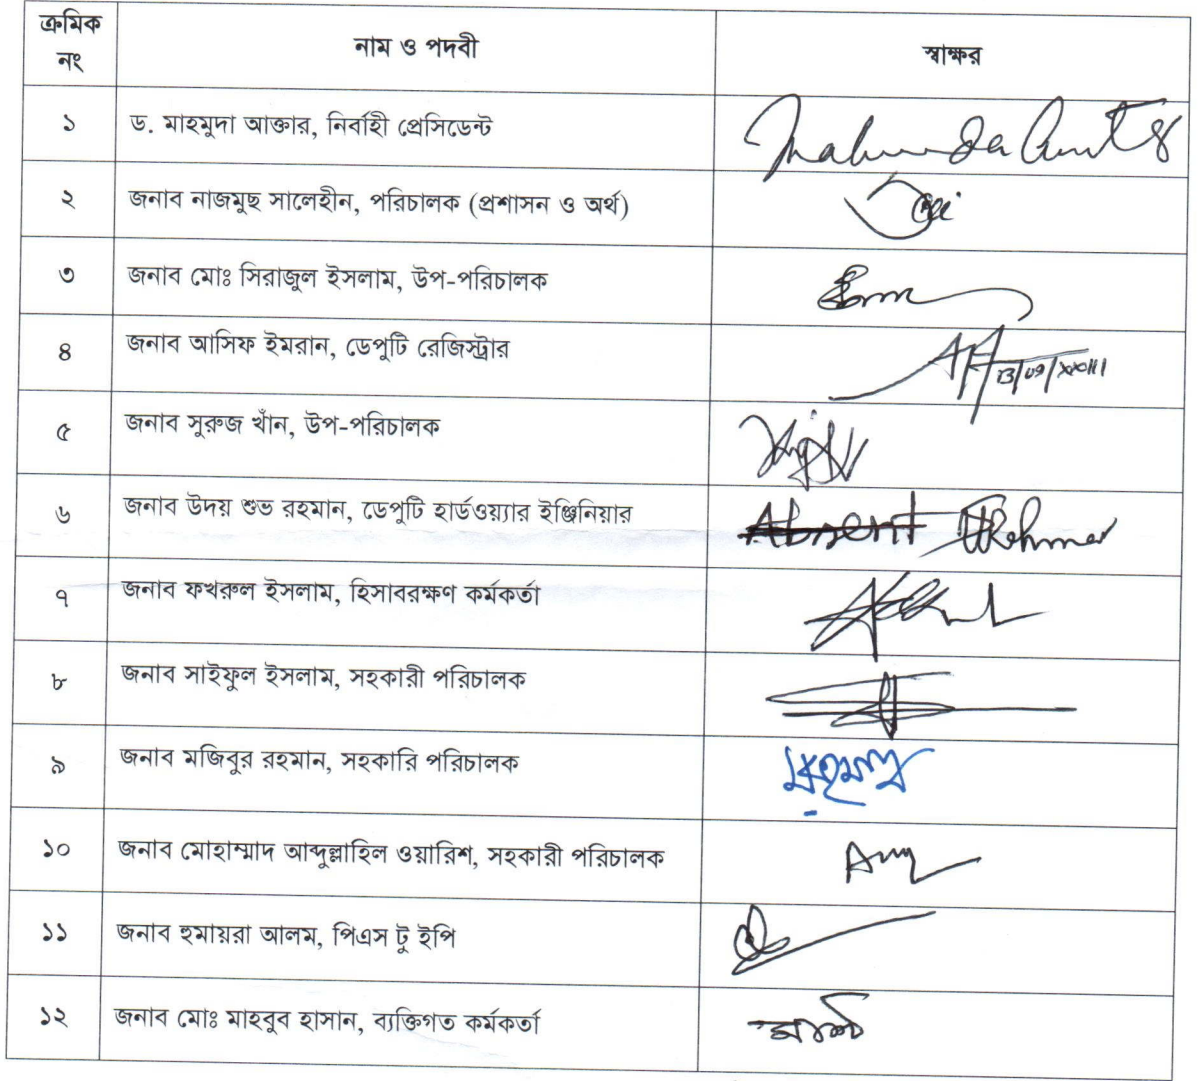 ক্রমিক নং নাম ও পদবী স্বাক্ষর
১ ড. মাহমুদা আক্তার, নির্বাহী প্রেসিডেন্ট
২ জনাব নাজমুছ সালেহীন, পরিচালক (প্রশাসন ও অর্থ)
৩ জনাব মোঃ সিরাজুল ইসলাম, উপ-পরিচালক
৪ জনাব আসিফ ইমরান, ডেপুটি রেজিস্ট্রার
৫ জনাব সুরুজ খাঁন, উপ-পরিচালক
৬ জনাব উদয় শুভ রহমান, ডেপুটি হার্ডওয়্যার ইঞ্জিনিয়ার Absent Rahman
৭ জনাব ফখরুল ইসলাম, হিসাবরক্ষণ কর্মকর্তা
৮ জনাব সাইফুল ইসলাম, সহকারী পরিচালক
৯ জনাব মজিবুর রহমান, সহকারি পরিচালক
১০ জনাব মোহাম্মাদ আব্দুল্লাহিল ওয়ারিশ, সহকারী পরিচালক
১১ জনাব হুমায়রা আলম, পিএস টু ইপি
১২ জনাব মোঃ মাহবুব হাসান, ব্যক্তিগত কর্মকর্তা